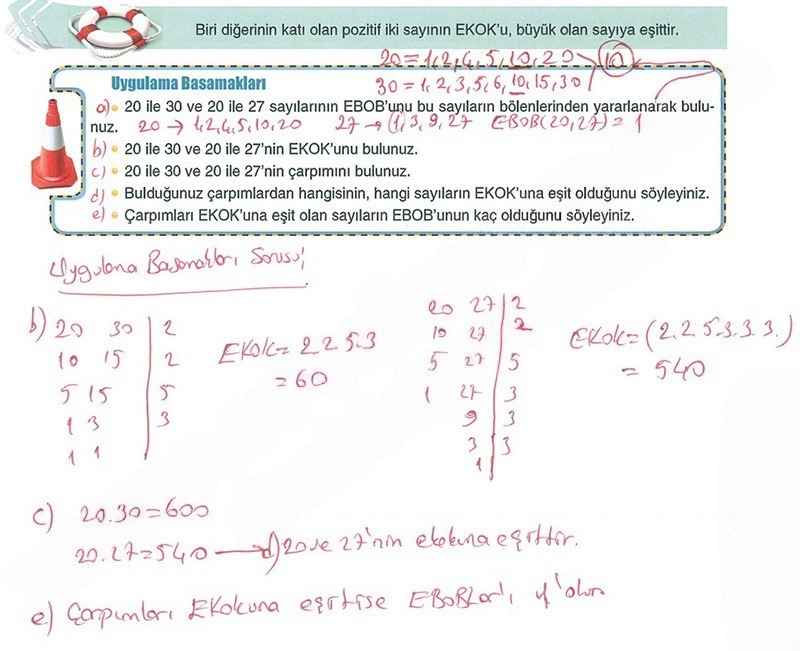 Biri diğerinin katı olan pozitif iki sayının EKOK'u, büyük olan sayıya eşittir.
20=1,2,4,5,10,20
10
30=1,2,3,5,6,10,15,30
Uygulama Basamakları
a) 20 ile 30 ve 20 ile 27 sayılarının EBOB'unu bu sayıların bölenlerinden yararlanarak bulu-
nuz. 20 → 1,2,4,5,10,20 27 → 1,3,9,27 EBOB(20,27)=1
b) 20 ile 30 ve 20 ile 27'nin EKOK'unu bulunuz.
c) 20 ile 30 ve 20 ile 27'nin çarpımını bulunuz.
d) Bulduğunuz çarpımlardan hangisinin, hangi sayıların EKOK'una eşit olduğunu söyleyiniz.
e) Çarpımları EKOK'una eşit olan sayıların EBOB'unun kaç olduğunu söyleyiniz.
Uygulama Basamakları Sorusu
b) 20 30 2
10 15 2
5 15 5
1 3 3
1 1
EKOK= 2.2.5.3
=60
20 27 2
10 27 2
5 27 5
1 27 3
9 3
3 3
1
EKOK=(2.2.5.3.3.3.)
= 540
c) 20.30=600
20.27=540 → d) 20 ve 27'nin ekokuna eşittir.
e) Çarpımları EKOKuna eşitse EBOBLar'ı 1'olur